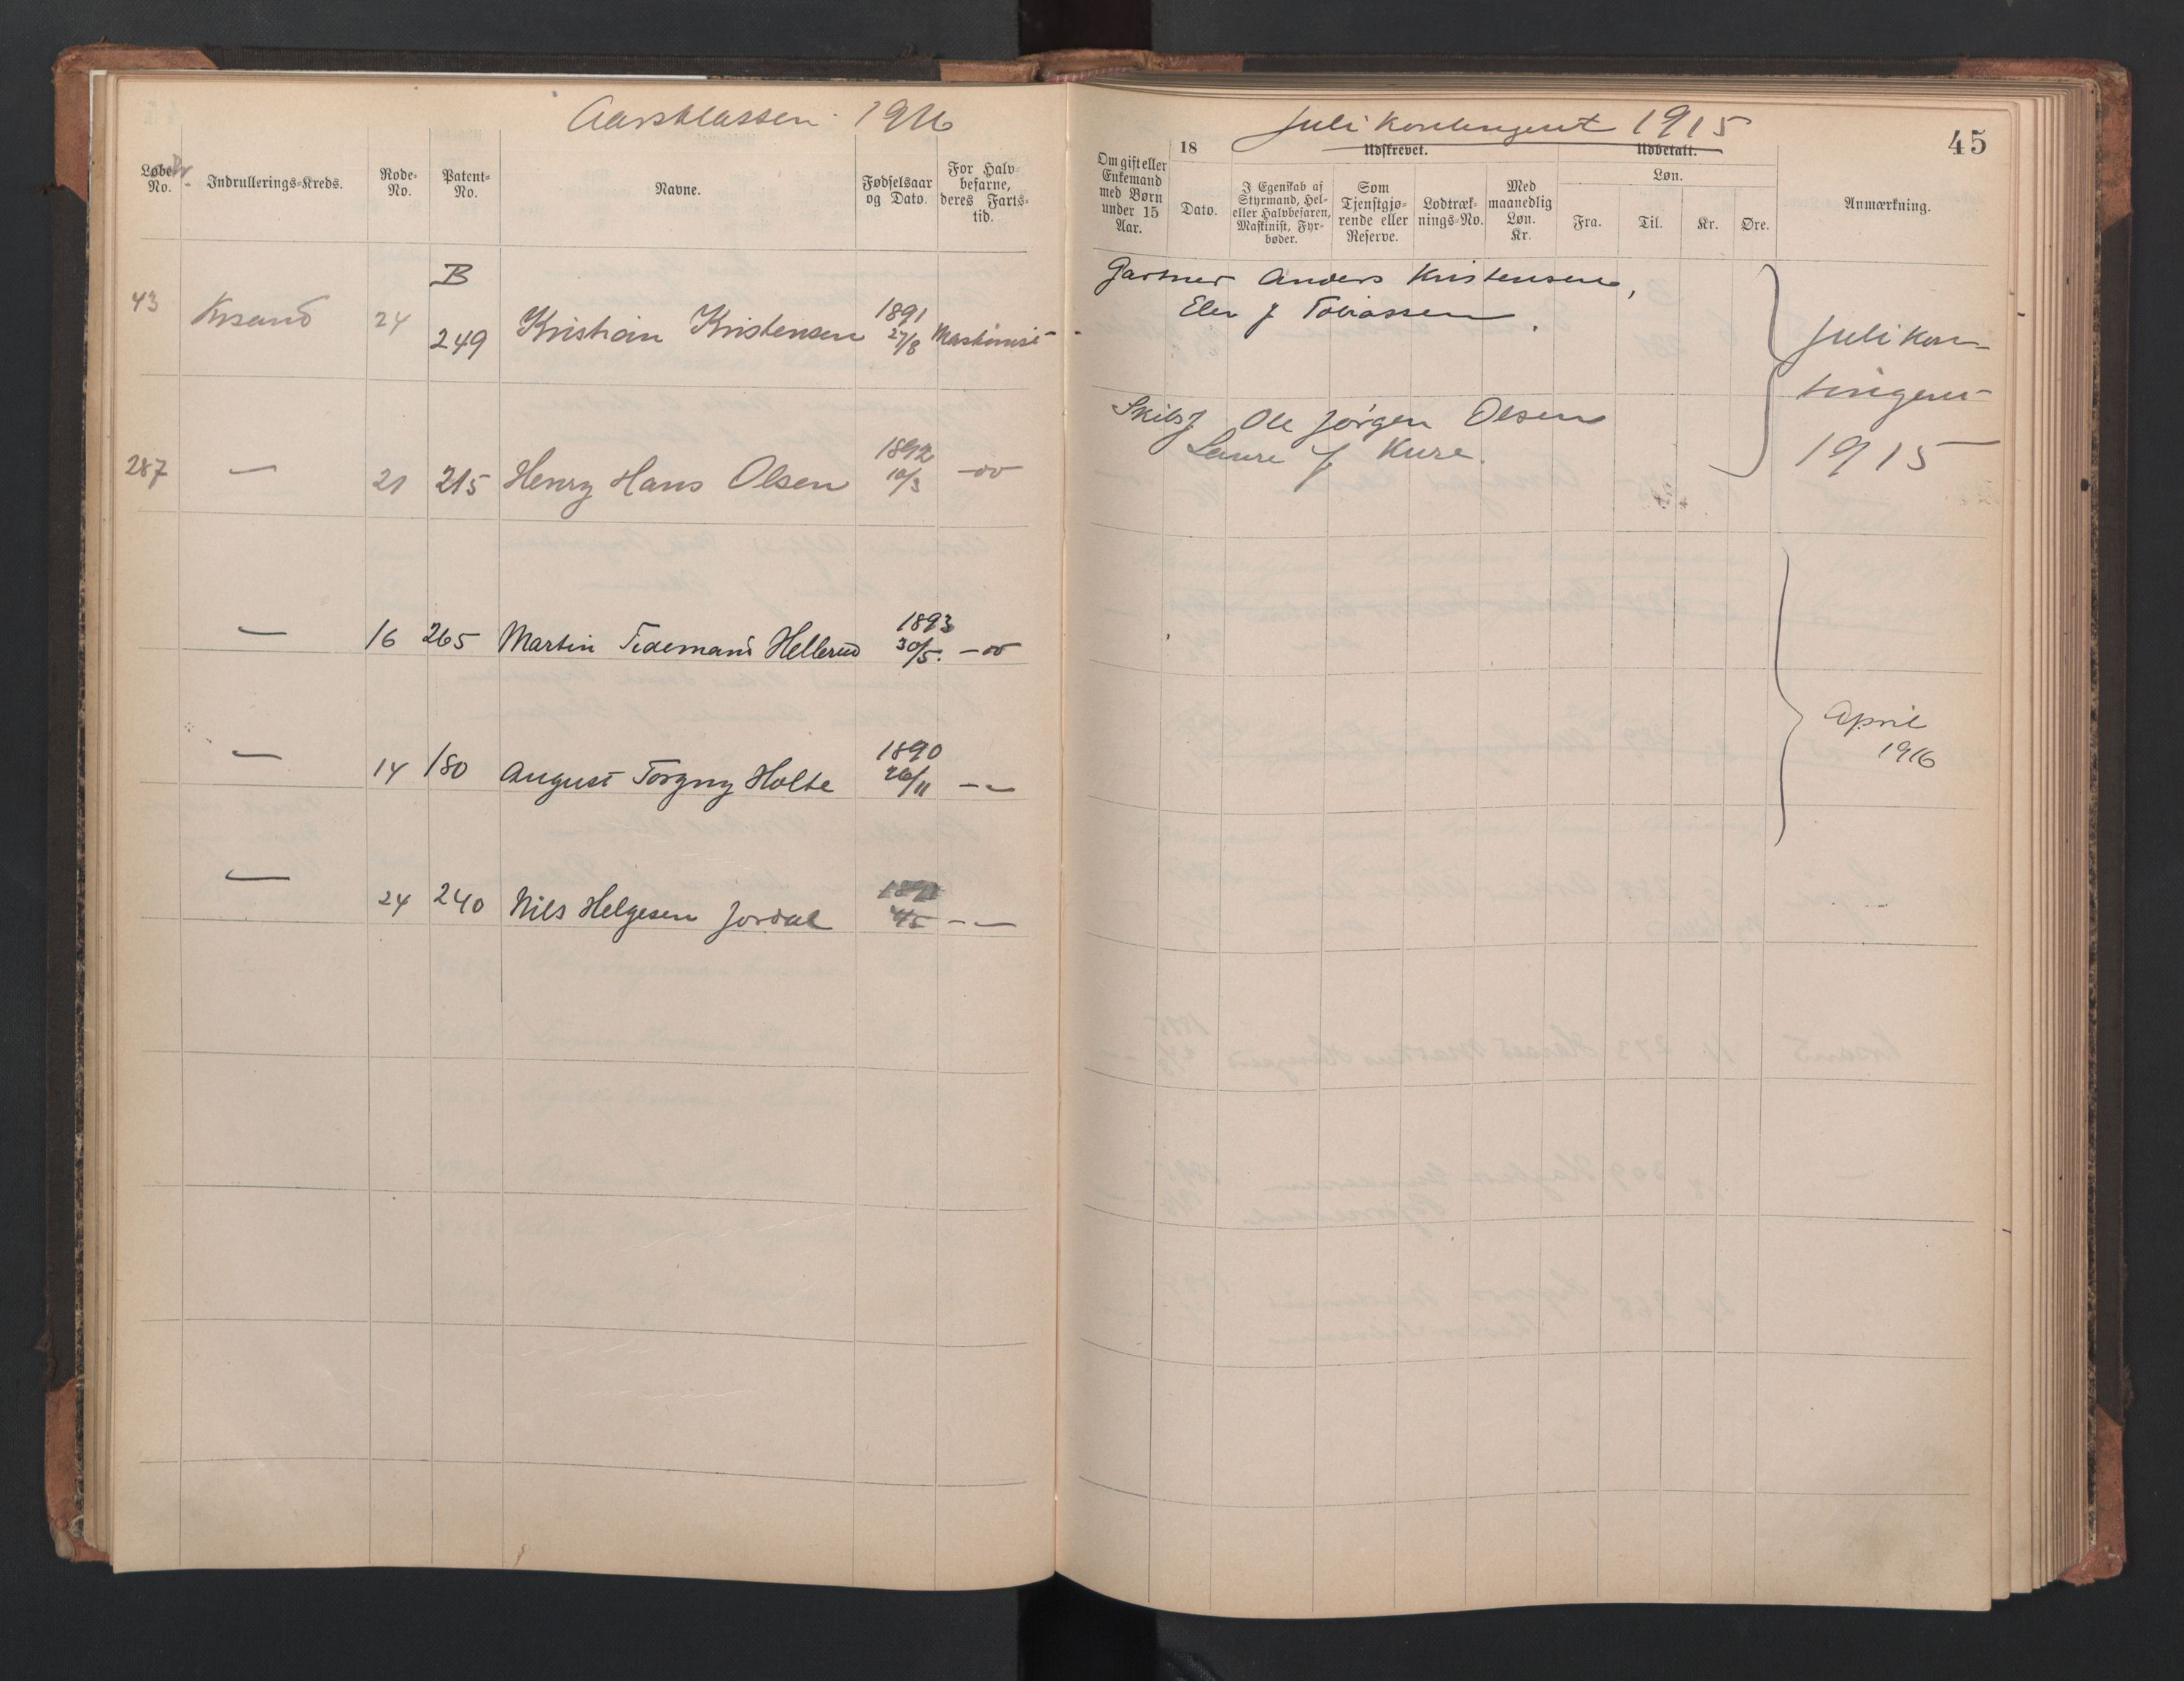 Aarsklassen 1916
Juli kontingent 1915
45
Løbe-No.
Indrullerings-Kreds.
Rode-No.
Patent-No.
Navne.
Fødselsaar og Dato.
For Halvbefarne, deres Farts-tid.
Om gift eller Enkemand med Børn under 15 Aar.
18
Dato.
Udskrevet.
I Egenskab af Styrmand, Hel- eller Halvbefaren, Maskinist, Fyrbøder.
Som Tjenstgjørende eller Reserve.
Lodtræknings-No.
Med maanedlig Løn. Kr.
Udbetalt.
Løn.
Fra.
Til.
Kr.
Øre.
Anmærkning.
B
43 Krsand 24 249 Kristian Kristensen 1891 27/8 Maskinist
Gartner Anders Kristensen,
Elen f Tobiassen.
Juli kontingent 1915
287 — 21 215 Henry Hans Olsen 1892 10/3 —oo—
Skibsf Ole Jørgen Olsen
Laure f Kure.
— 16 265 Martin Tidemand Hellerud 1893 30/5. —oo—
— 14 180 August Torgny Holte 1890 26/11 — —
April 1916
— 24 240 Nils Helgesen Jordal 4/5 — —